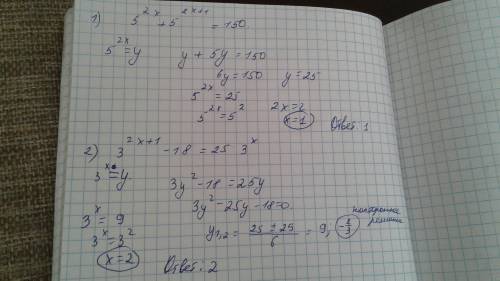 1) 5^{2x} + 5^{2x+1} = 150
5^{2x} = y y + 5y = 150
6y = 150 y = 25
5^{2x} = 25
5^{2x} = 5^2 2x = 2
x = 1 Ответ: 1
2) 3^{2x+1} - 18 = 25 3^x
3^x = y 3y^2 - 18 = 25y
3y^2 - 25y - 18 = 0
3^x = 9 y_{1,2} = \frac{25 ± 29}{6} = 9, -\frac{2}{3} постороннее решение
3^x = 3^2
x = 2 Ответ: 2